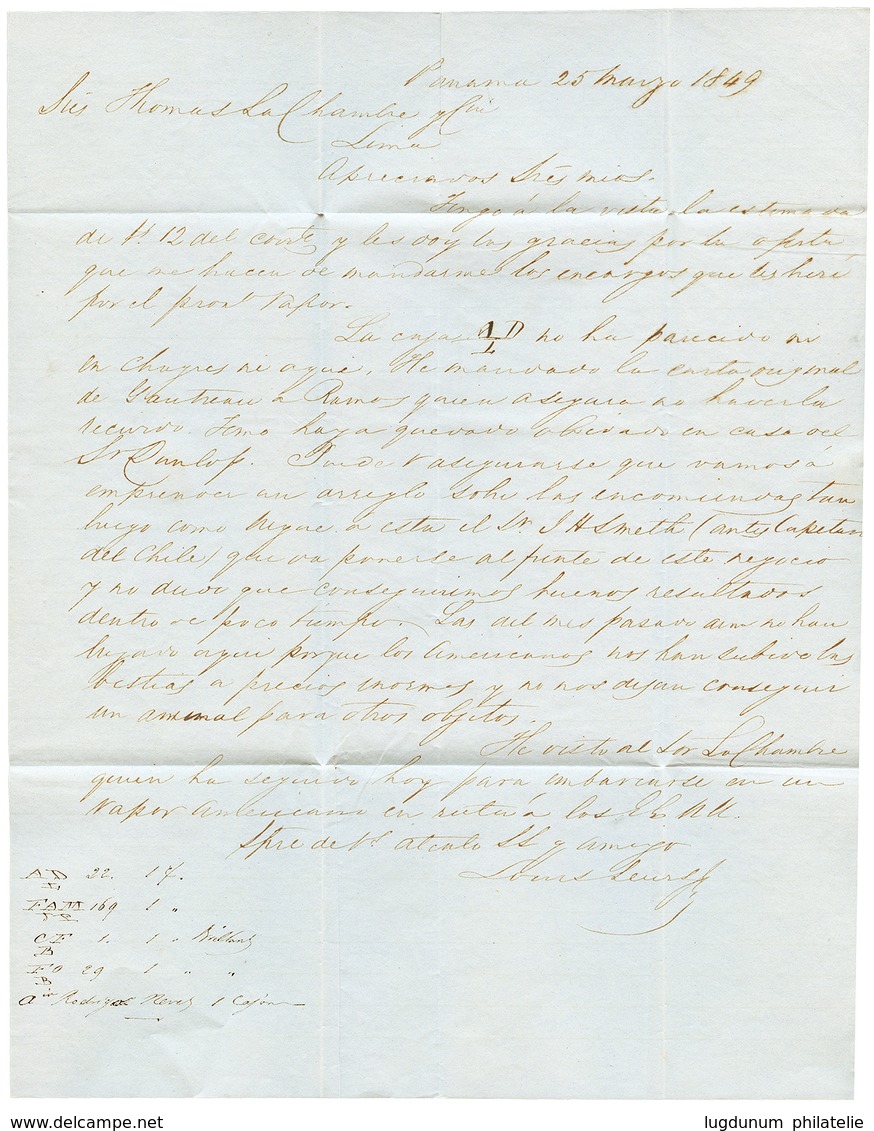 Panama 25 Marzo 1849
Sres Thomas La Chambre y Cia
Lima
Apreciados Sres mios.
Tengo á la vista la estimada
de Vs 12 del corrte y les doy las gracias por la oferta
que me hacen de mandarme los encargos que les haré
por el proxo vapor.
La caja AD no ha parecido ni
L
en Chagres ni aqui. He mandado la carta original
de Gautreau a Ramos quien asegura no haverla
recivido. Temo haya quedado olvidado en casa del
Sr Dunlop. Puede V asegurarse que vamos á
emprender un arreglo sobe las encomiendas tan
luego como llegue a esta el Sr. J H Smeth (antes Capitan
del Chile) que va ponerse al frente de este negocio
y no dudo que conseguiremos buenos resultados
dentro de poco tiempo. Las del mes pasado aun no han
llegado aqui porque los Americanos nos han subido las
bestias a precios inormes y no nos dejan conseguir
un animal para otros objetos.
He visto al Sor La Chambre
quien ha seguido hoy para embarcarse en un
vapor Americano en ruta á los EE UU.
Spre de Vs atento SS y amigo
Louis
AD 22. 1
L
FAM 169 1 "
CF 1. 1 "
B
FO 29 1 " "
B
1 Cajon
lugdunum philatelie
www.delcampe.net